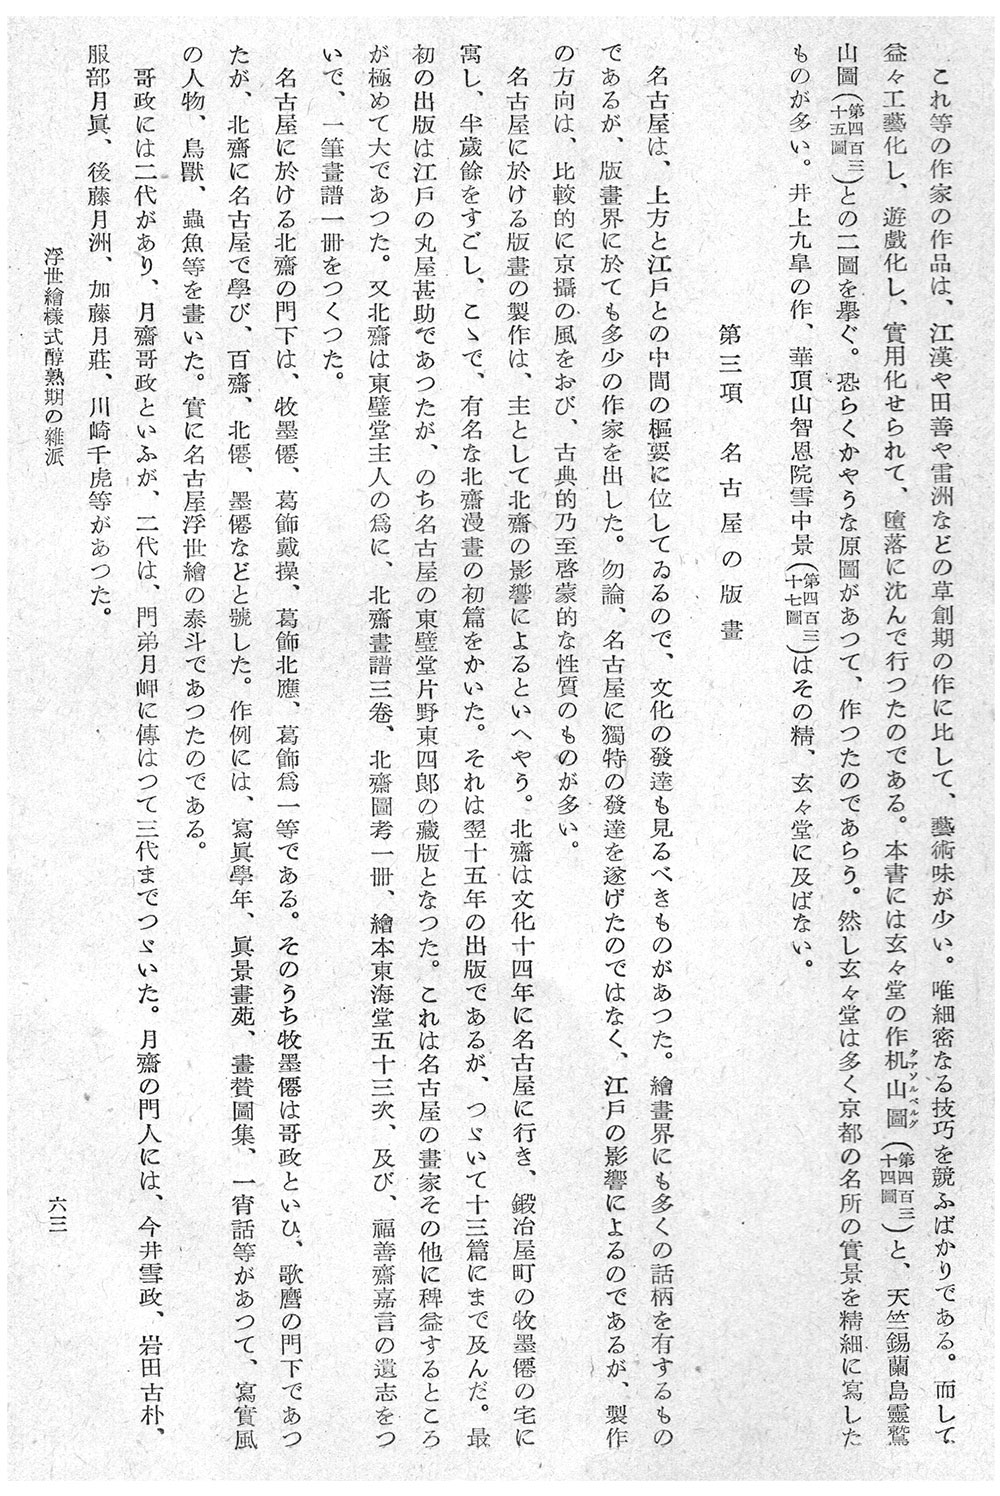 これ等の作家の作品は、江漢や田善や雷洲などの草創期の作に比して、藝術味が少い。唯細密なる技巧を競ふばかりである。而して
益々工藝化し、遊戲化し、實用化せられて、墮落に沈んで行つたのである。本書には玄々堂の作机山圖(第四百三十四圖)と、天竺錫蘭島靈鷲
タアソルベルグ
山圖(第四百三十五圖)との二圖を擧ぐ。恐らくかやうな原圖があつて、作つたのであらう。然し玄々堂は多く京都の名所の實景を精細に寫した
ものが多い。井上九皐の作、華頂山智恩院雪中景(第四百三十七圖)はその精、玄々堂に及ばない。
第三項　名古屋の版畫
名古屋は、上方と江戸との中間の樞要に位してゐるので、文化の發達も見るべきものがあつた。繪畫界にも多くの話柄を有するもの
であるが、版畫界に於ても多少の作家を出した。勿論、名古屋に獨特の發達を遂げたのではなく、江戸の影響によるのであるが、製作
の方向は、比較的に京攝の風をおび、古典的乃至啓蒙的な性質のものが多い。
名古屋に於ける版畫の製作は、主として北齋の影響によるといへやう。北齋は文化十四年に名古屋に行き、鍛冶屋町の牧墨僊の宅に
寓し、半歲餘をすごし、こゝで、有名な北齋漫畫の初篇をかいた。それは翌十五年の出版であるが、つゞいて十三篇にまで及んだ。最
初の出版は江戸の丸屋甚助であつたが、のち名古屋の東壁堂片野東四郎の藏版となつた。これは名古屋の畫家その他に稗益するところ
が極めて大であつた。又北齋は東壁堂主人の爲に、北齋畫譜三卷、北齋圖考一冊、繪本東海堂五十三次、及び、福善齋嘉言の遺志をつ
いで、一筆畫譜一冊をつくつた。
名古屋に於ける北齋の門下は、牧墨僊、葛飾戴操、葛飾北應、葛飾爲一等である。そのうち牧墨僊は哥政といひ、歌麿の門下であつ
たが、北齋に名古屋で學び、百齋、北僊、墨僊などと號した。作例には、寫眞學年、眞景畫苑、畫賛圖集、一宵話等があつて、寫實風
の人物、鳥獸、蟲魚等を畫いた。實に名古屋浮世繪の泰斗であつたのである。
哥政には二代があり、月齋哥政といふが、二代は、門弟月岬に傳はつて三代までつゞいた。月齋の門人には、今井雪政、岩田古朴、
服部月眞、後藤月洲、加藤月莊、川崎千虎等があつた。
浮世繪樣式醇熟期の雜派
六三